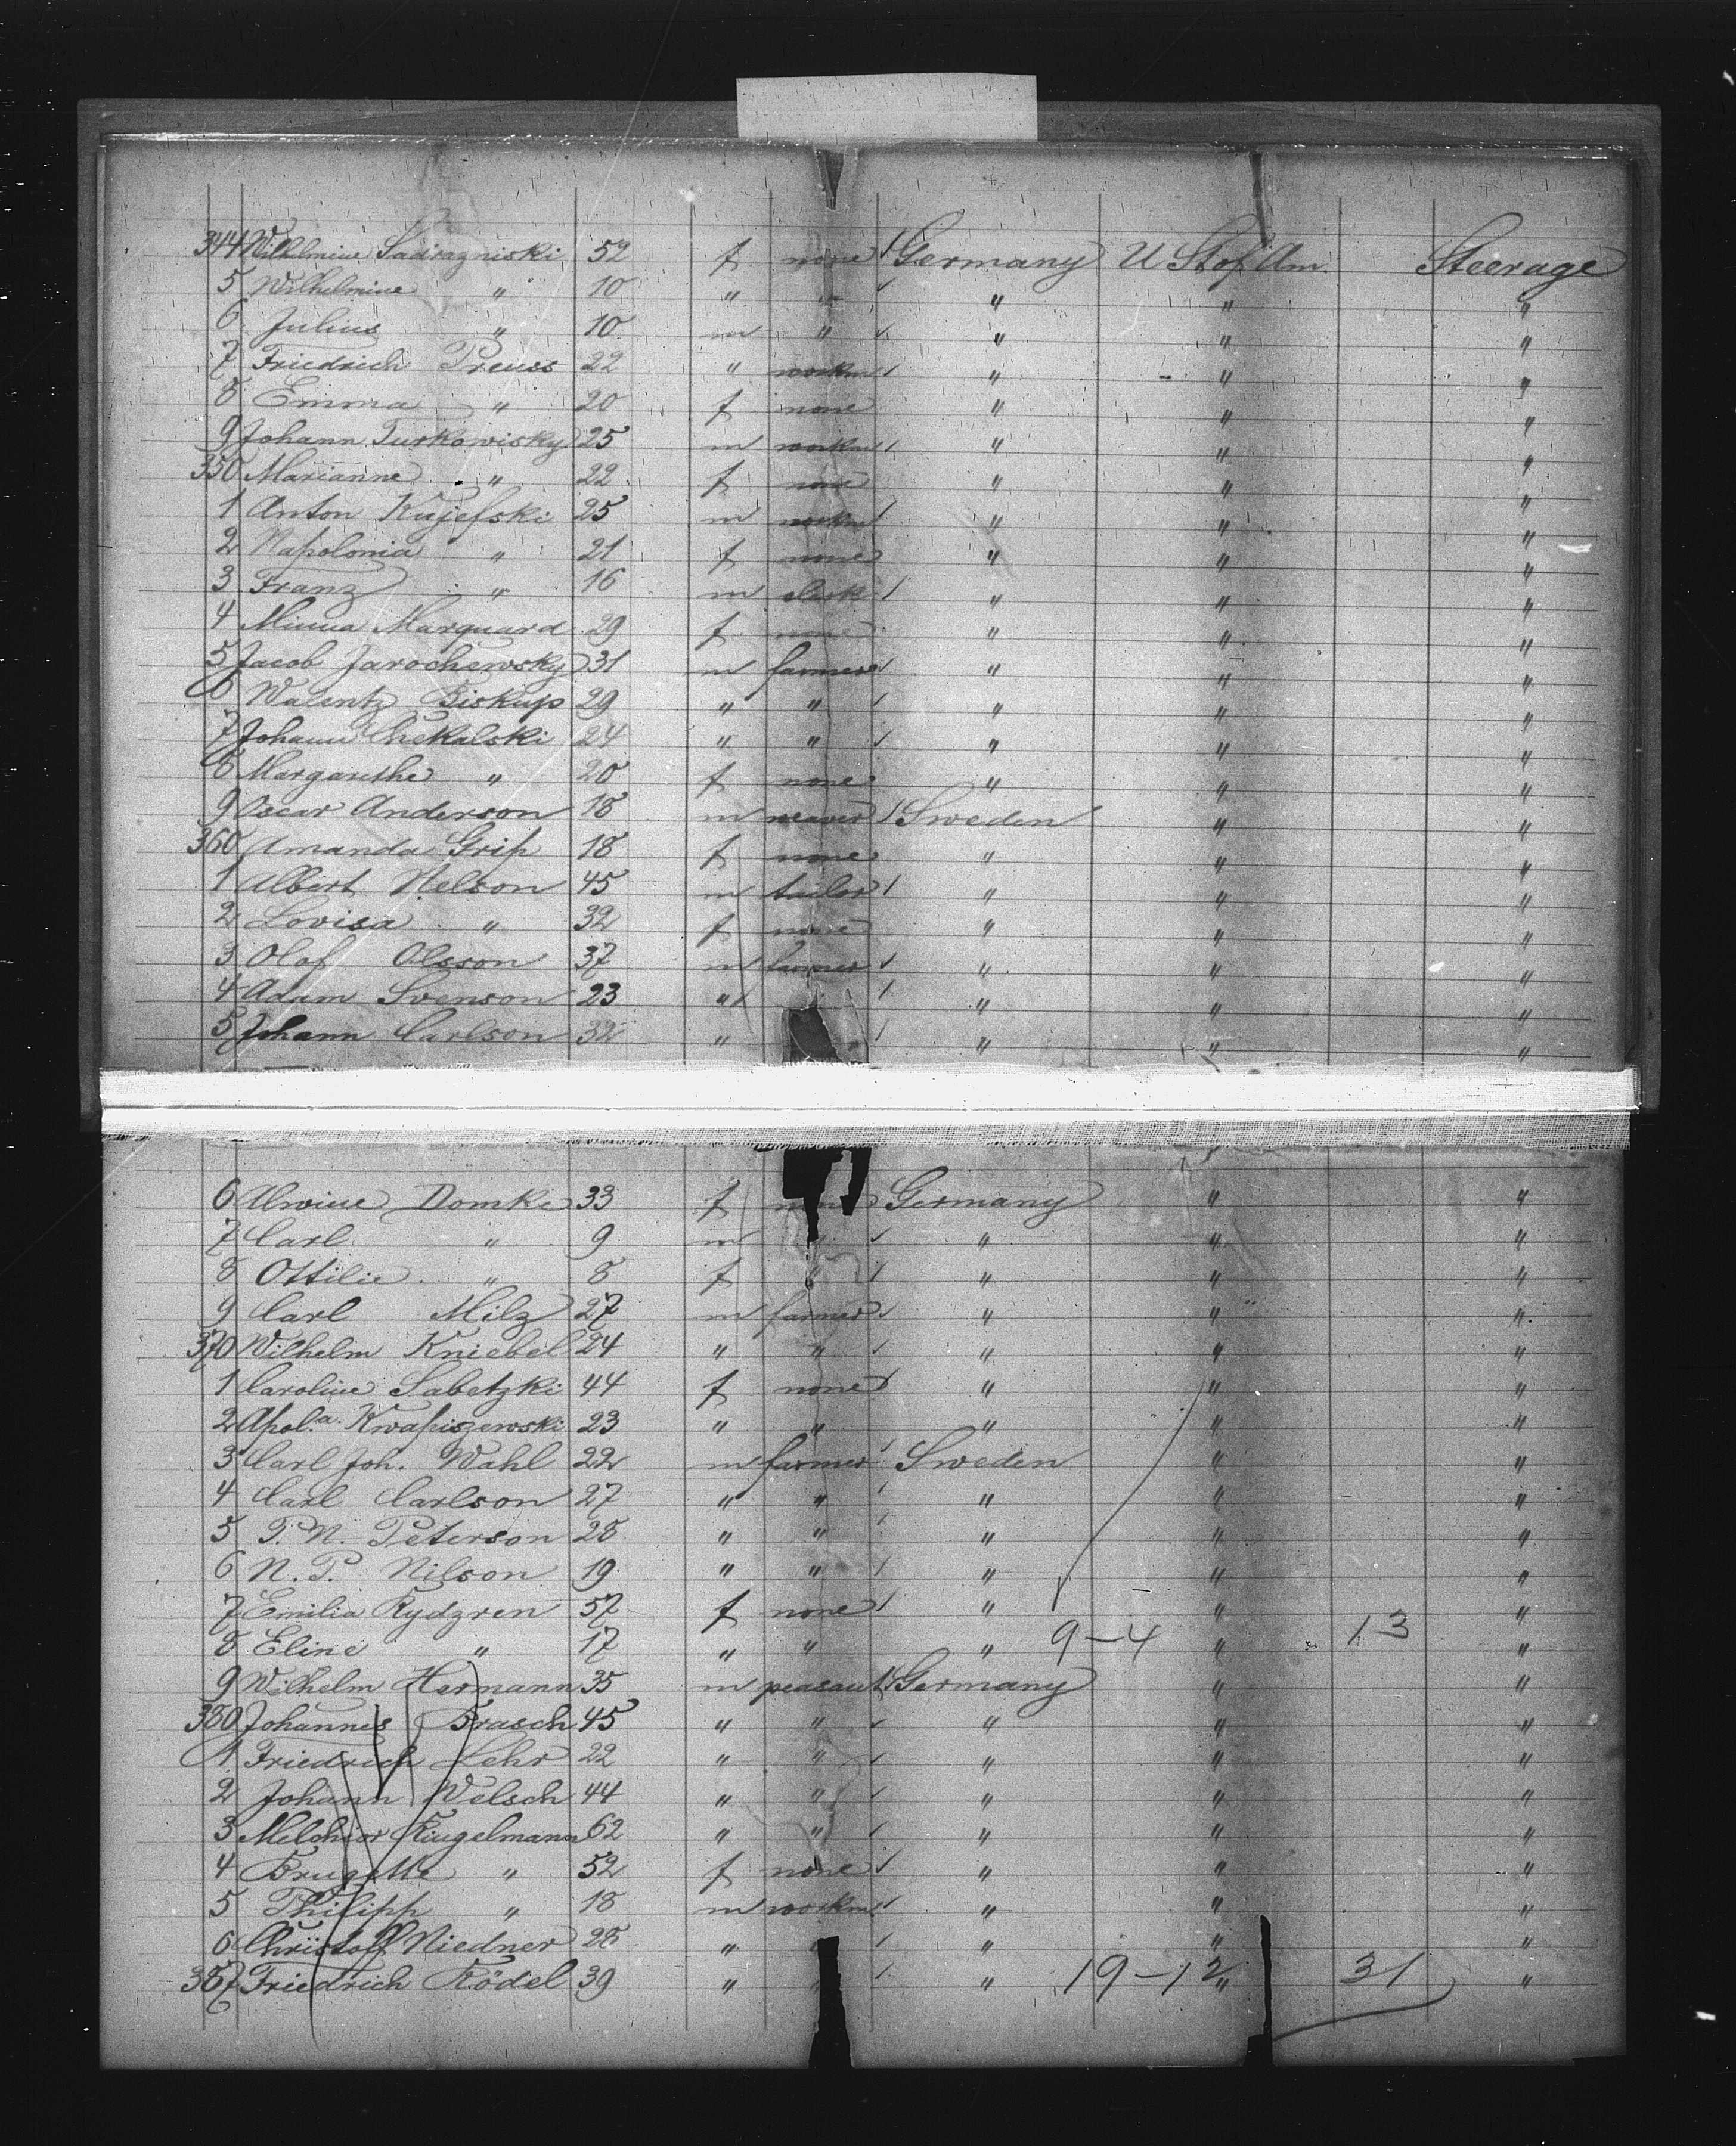 344 Wilhelmine Sadrazniski 52 f none Germany U St of Am. Steerage
5 Wilhelmine " 10 " " " " "
6 Julius " 10 m " " " "
7 Friedrich Preuss 22 " workm " " "
8 Emma " 20 f none " " "
9 Johann Turkowisky 25 m workm " " "
350 Marianne " 22 f none " " "
1 Anton Kujefski 25 m workm " " "
2 Napolonia " 21 f none " " "
3 Franz " 16 m clerk " " "
4 Minna Marquard 29 f none " " "
5 Jacob Jarochewsky 31 m farmer " " "
6 Walentz Biskup 29 " " " " "
7 Johann Chekalski 24 " " " " "
8 Margarethe " 20 f none " " "
9 Oscar Anderson 18 m weaver Sweden " "
360 Amanda Grip 18 f none " " "
1 Albert Nelson 45 m tailor " " "
2 Lovisa " 32 f none " " "
3 Olof Olsson 37 m farmer " " "
4 Adam Svenson 23 " " " "
5 Johann Carlson 32 " " " "
6 Alwine Domke 33 f none Germany " "
7 Carl " 9 m " " " "
8 Ottilie " 8 f " " " "
9 Carl Milz 27 m farmer " " "
370 Wilhelm Kniebel 24 " " " " "
1 Caroline Sabetzki 44 f none " " "
2 Apol.a Kwapiszewski 23 " " " " "
3 Carl Joh. Wahl 22 m farmer Sweden " "
4 Carl Carlson 27 " " " " "
5 P. N. Peterson 28 " " " " "
6 N. P. Nilson 19 " " " " "
7 Emilia Rydgren 57 f none " " "
8 Eline " 17 " " " 9-4 " 13 "
9 Wilhelm Hermann 35 m peasant Germany " "
380 Johannes Brasch 45 " " " " "
1 Friedrich Lehr 22 " " " " "
2 Johann Welsch 44 " " " " "
3 Melchior Ringelmann 62 " " " " "
4 Brugette " 52 f none " " "
5 Philipp " 18 m workm " " "
6 Christoff Niedner 28 " " " " "
387 Friedrich Rödel 39 " " " 19-12 " 31 "